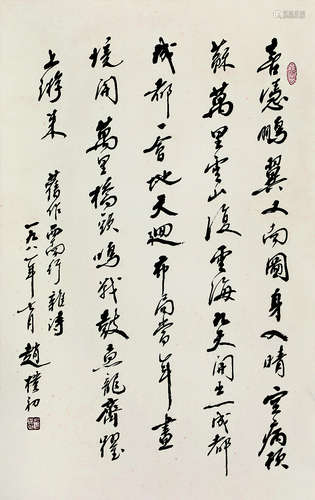 喜憑鵬翼又南圖身入晴空病頓
蘇萬里雲山復雲海九天開出一成都
成都一會地天迴布局當年畫
境開萬里橋頭鳴戰鼓魚龍齊躍
上游来 舊作西南行雜詩
一九八一年七月 趙樸初